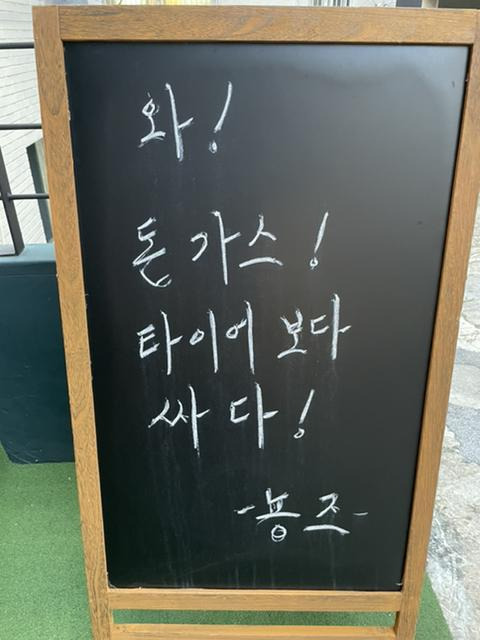 와!
돈가스!
타이어보다
싸다!
-용즈-